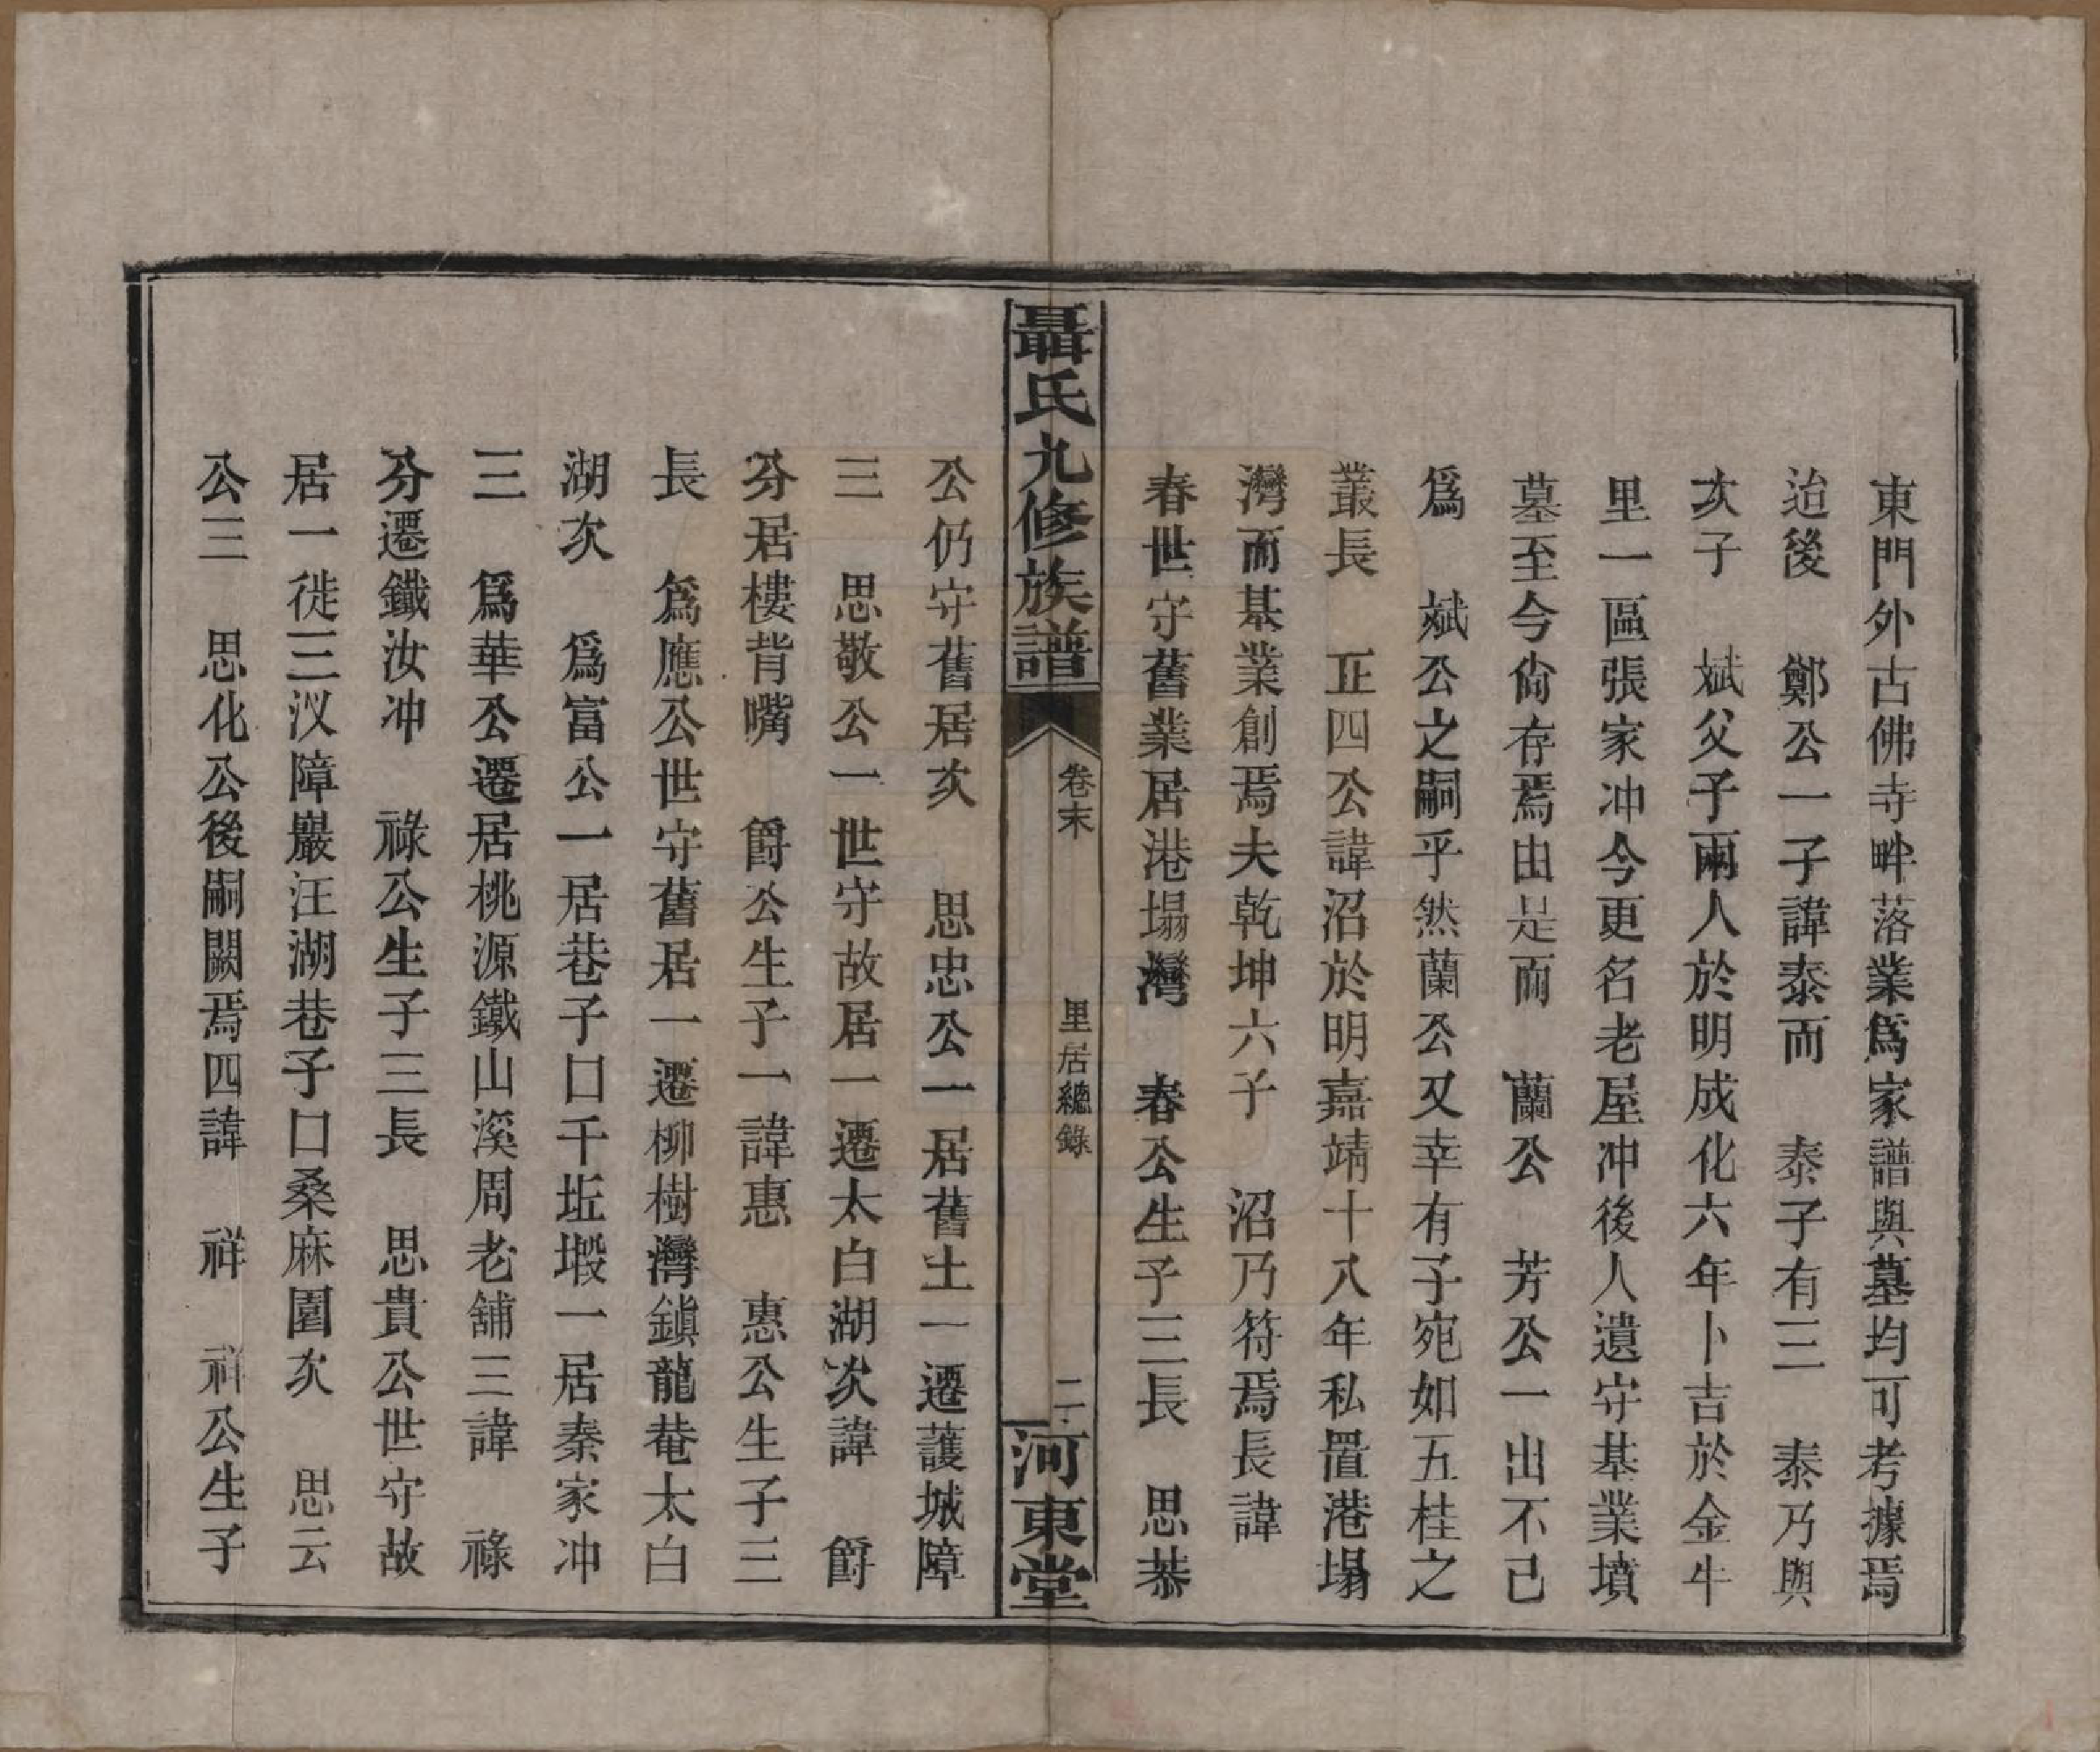 東門外古佛寺畔落業爲家譜與墓均可考據焉
迨後　鄭公一子諱泰而　泰子有三　泰乃與
次子　斌父子兩人於明成化六年卜吉於金牛
里一區張家冲今更名老屋冲後人遺守基業墳
墓至今尙存焉由是而　蘭公　芳公一出不已
爲　斌公之嗣乎然蘭公又幸有子宛如五桂之
叢長　正四公諱沼於明嘉靖十八年私置港塌
灣而基業創焉夫乾坤六子　沼乃符焉長諱
春世守舊業居港塌灣　春公生子三長　思恭
聶氏九修族譜
卷末
里居總錄
二
河東堂
公仍守舊居次　思忠公一居舊土一遷護城障
三　思敬公一世守故居一遷太白湖次諱　爵
分居樓背嘴　爵公生子一諱惠　惠公生子三
長　爲應公世守舊居一遷柳樹灣鎭龍菴太白
湖次　爲富公一居巷子口干坵塅一居秦家冲
三　爲華公遷居桃源鐵山溪周老舖三諱　祿
分遷鐵汝冲　祿公生子三長　思貴公世守故
居一徙三汊障巖汪湖巷子口桑麻園次　思云
公三　思化公後嗣闕焉四諱　祥　祥公生子